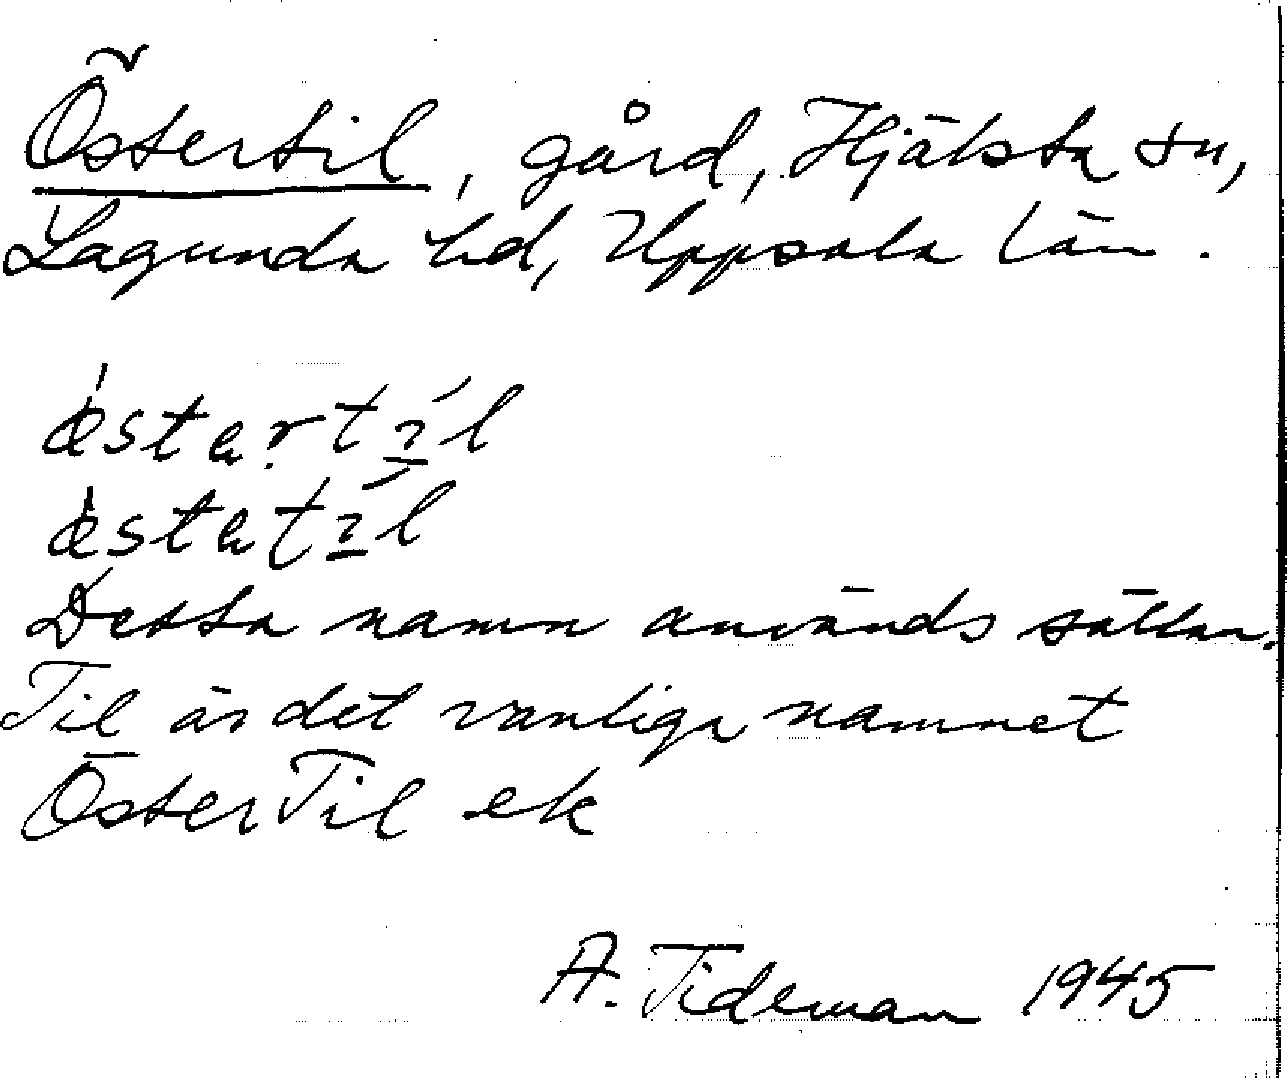 Östertil, gård, Hjälsta sn,
Lagunda hd, Uppsala län.
östạrtí̱l
östatí̱l
Dessa namn används sällan.
Til är det vanliga namnet
ÖsterTil ek
A. Tideman 1945